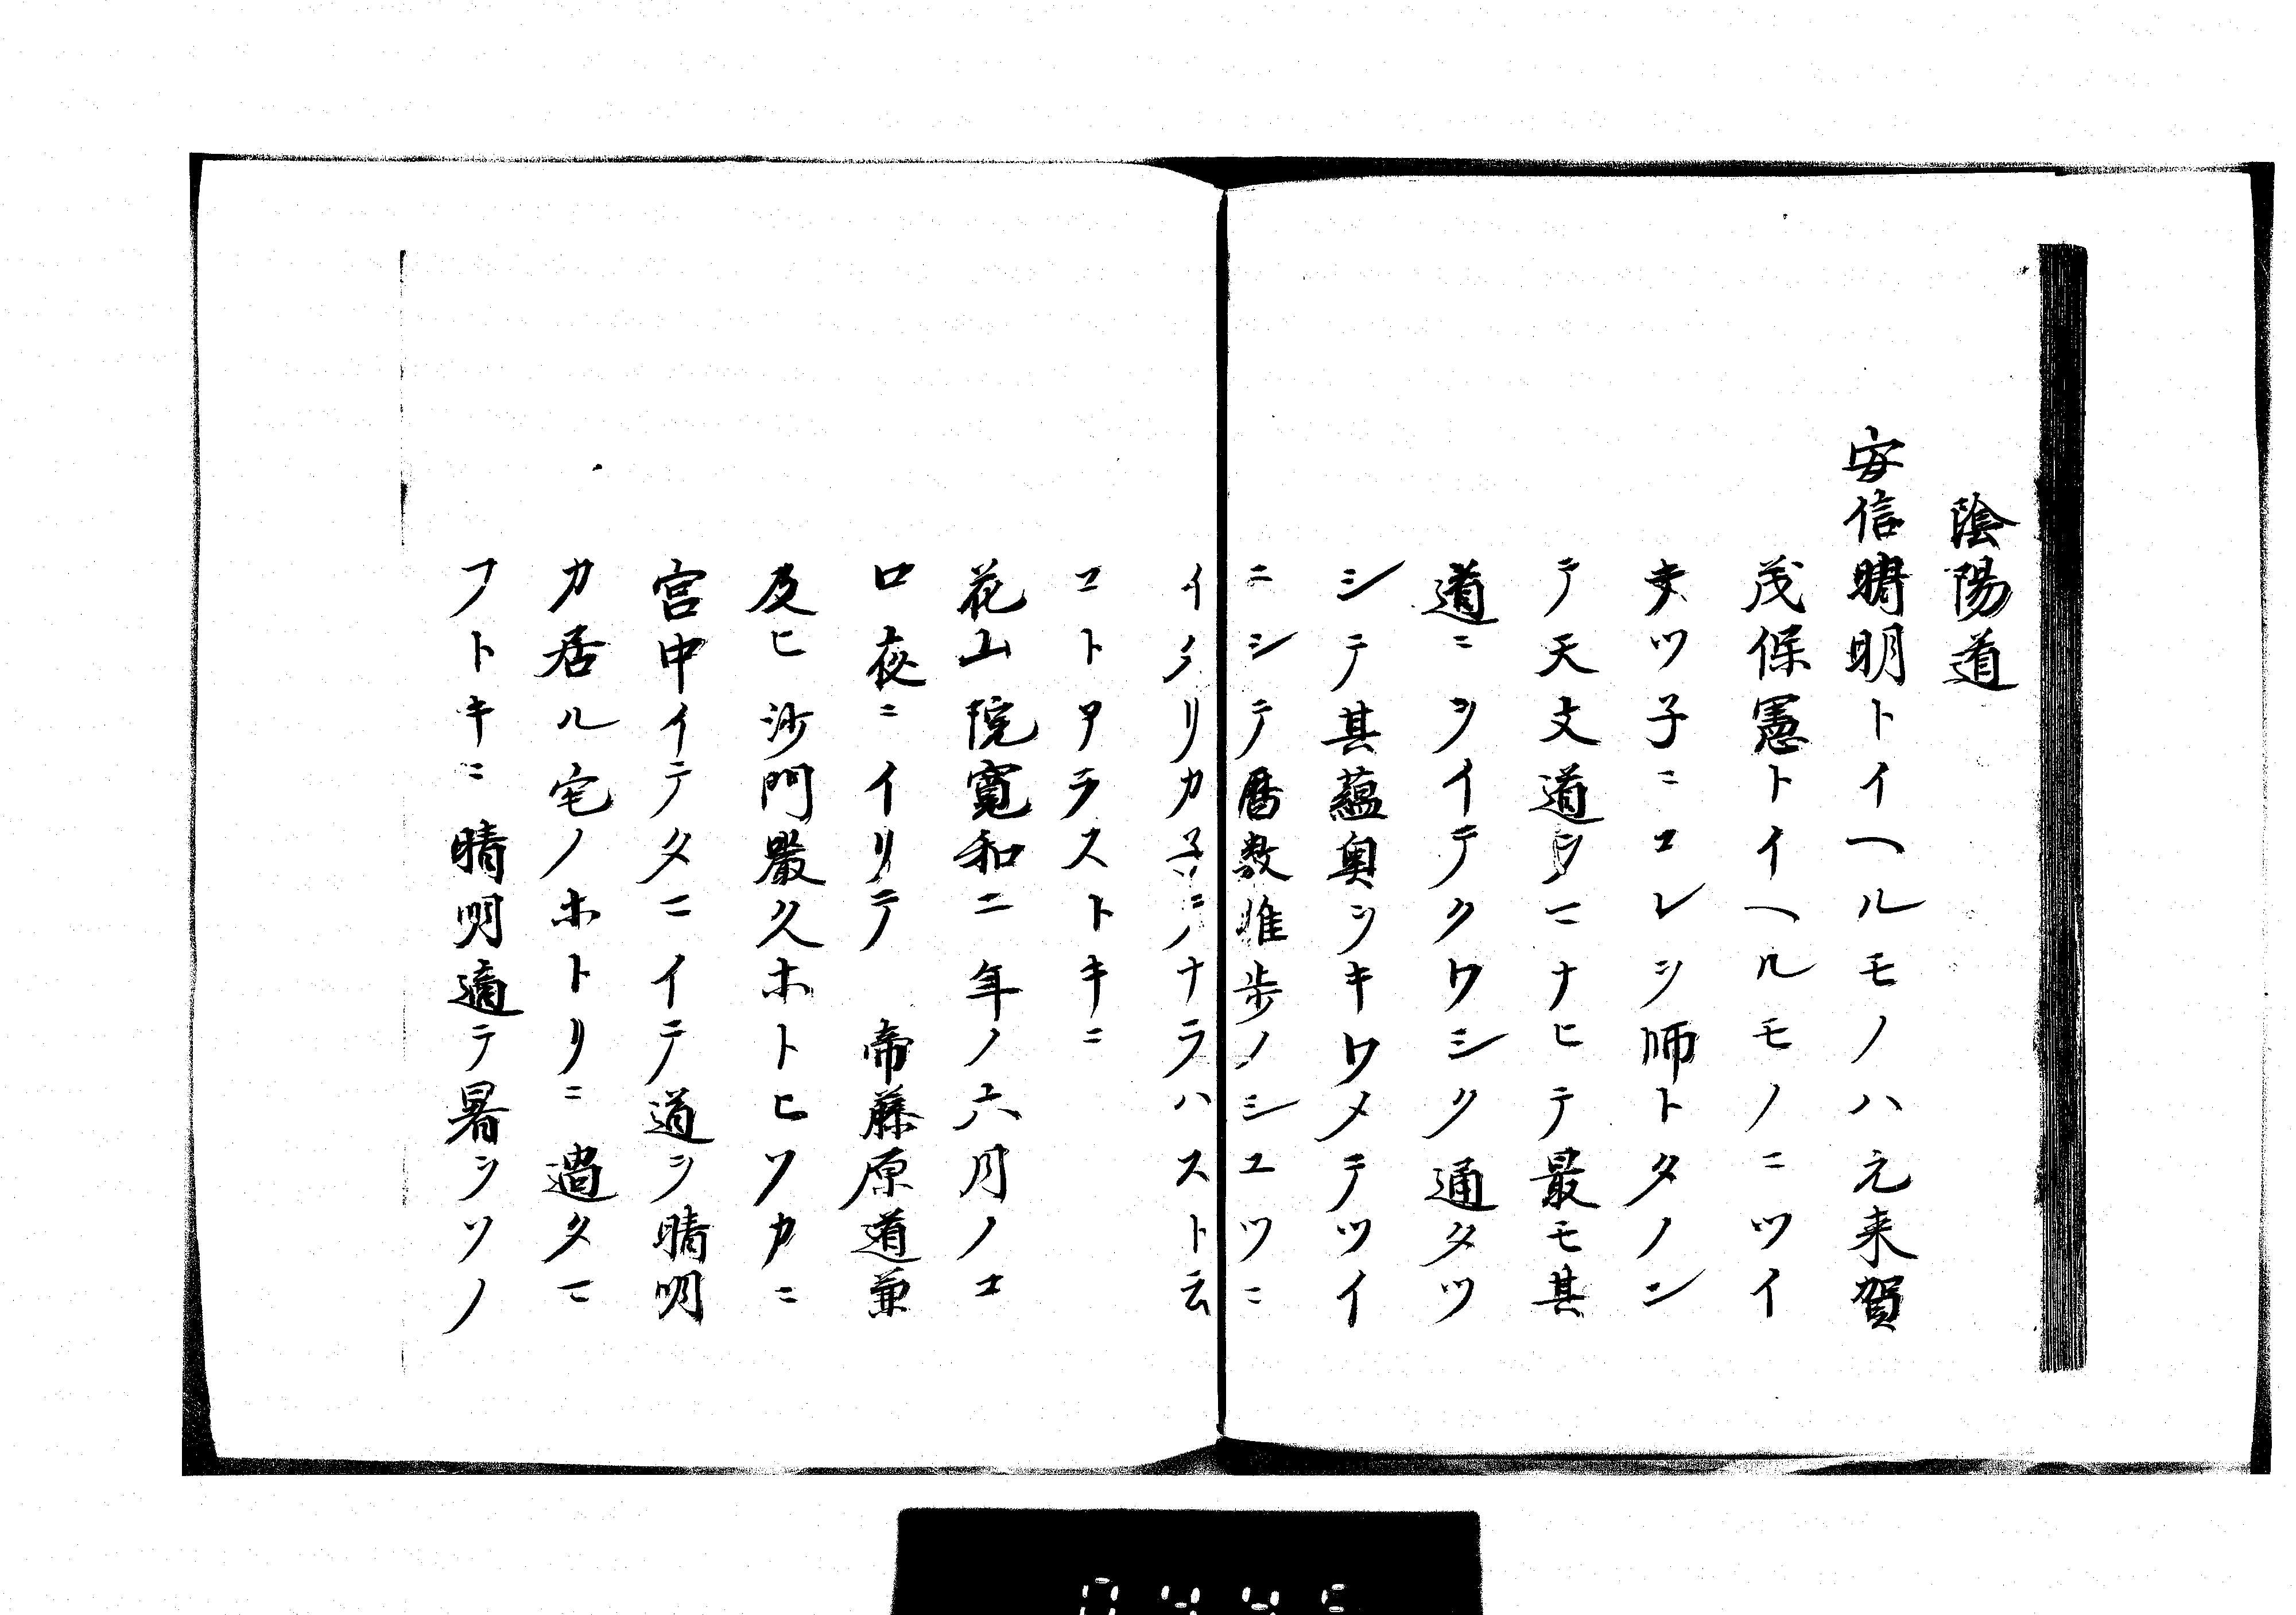 陰陽道
安信晴明トイヘルモノハ元来賀
茂保憲トイヘルモノニツイ
テツ子ニコレヲ師トタノン
テ天文道ヲマナヒテ最モ其
道ニツイテクワシク通タツ
シテ其蘊奥ヲキワメテツイ
ニシテ暦数推歩ノシユツニ
イノリカ子ニナラハスト云
コトアラストキニ
花山院寛和二年ノ六月ノコ
ロ夜ニイリテ 帝藤原道兼
及ヒ沙門嚴久ホトヒソカニ
宮中イテタマイテ道ヲ晴明
カ居ル宅ノホトリニ過タマ
フトキニ晴明適テ暑ヲソノ